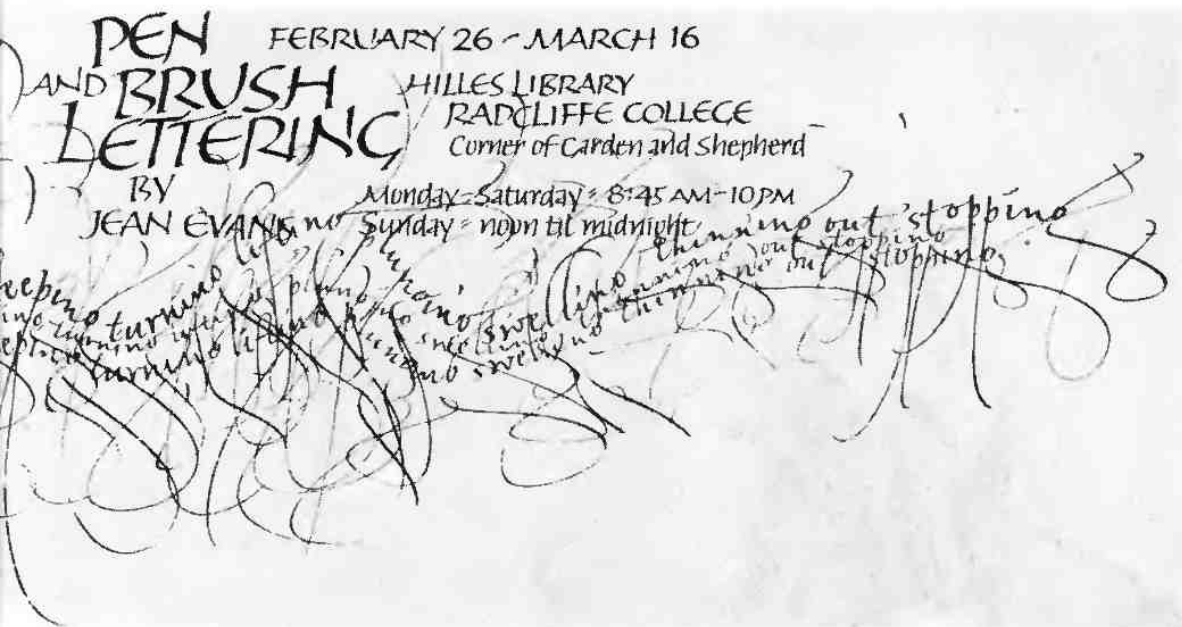 PEN
AND BRUSH
LETTERING
BY
JEAN EVANS
FEBRUARY 26 - MARCH 16
HILLES LIBRARY
RADCLIFFE COLLEGE
Corner of Garden and Shepherd
Monday-Saturday = 8:45 AM-10PM
Sunday = noon til midnight
eeping turning lifting plunging swelling thinning out stopping
turning lifting plunging swelling thinning out stopping
turning lifting plunging swelling thinning out stopping